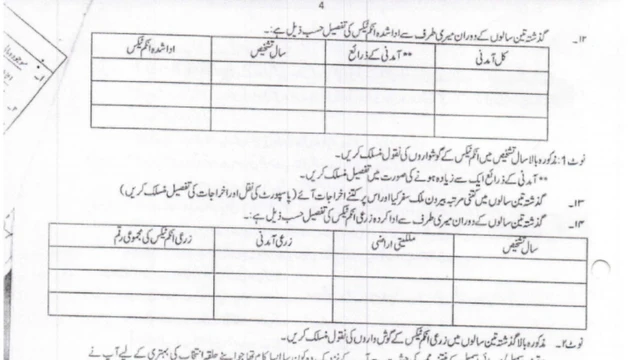 4
۱۲۔ گذشتہ تین سالوں کے دوران میری طرف سے ادا شدہ انکم ٹیکس کی تفصیل حسب ذیل ہے:۔
کل آمدنی ** آمدنی کے ذرائع سال تشخیص ادا شدہ انکم ٹیکس
نوٹ 1: مذکورہ بالا سال تشخیص میں انکم ٹیکس کے گوشواروں کی نقول منسلک کریں۔
** آمدنی کے ذرائع ایک سے زیادہ ہونے کی صورت میں تفصیل منسلک کریں۔
۱۳۔ گذشتہ تین سالوں میں کتنی مرتبہ بیرون ملک سفر کیا اور اس پر کتنے اخراجات آئے (پاسپورٹ کی نقل اور اخراجات کی تفصیل منسلک کریں)
۱۴۔ گذشتہ تین سالوں کے دوران میری طرف سے ادا کردہ زرعی انکم ٹیکس کی تفصیل حسب ذیل ہے:۔
سال تشخیص ملکیتی اراضی زرعی آمدنی زرعی انکم ٹیکس کی مجموعی رقم
نوٹ ۲۔ مذکورہ بالا گذشتہ تین سالوں میں زرعی انکم ٹیکس کے گوش واروں کی نقول منسلک کریں۔
حلقہ انتخاب کی بہتری کے لیے آپ نے